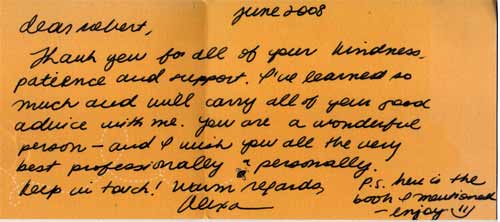 june 2008
dear robert,
Thank you for all of your kindness,
patience and support. I've learned so
much and will carry all of your good
advice with me. you are a wonderful
person - and I wish you all the very
best professionally & personally.
Keep in touch! Warm regards,
Alexa
P.S. here is the
book I mentioned
- enjoy!!